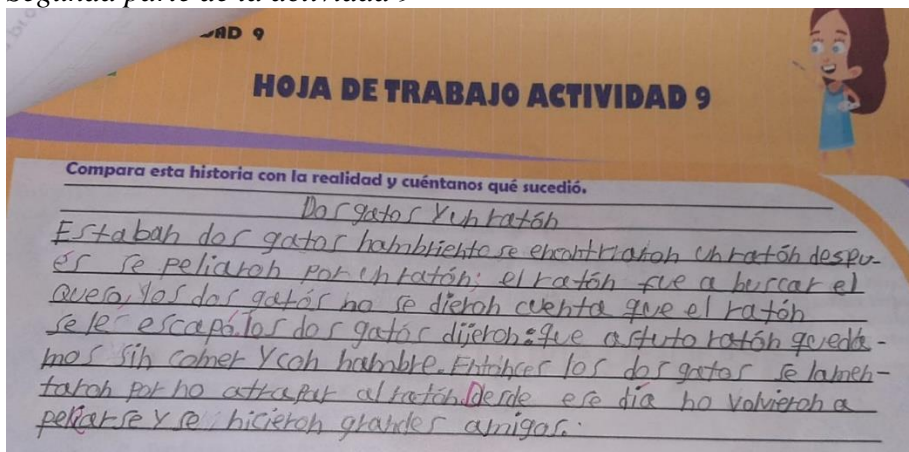 Segunda parte de la actividad 9
AD 9
HOJA DE TRABAJO ACTIVIDAD 9
Compara esta historia con la realidad y cuéntanos qué sucedió.
Dos gatos Y un ratón
Estaban dos gatos hambriento se encontriaron un ratón despu-
és se peliaron por un ratón; el ratón fue a buscar el
Queso, los dos gatós no se dieron cuenta que el ratón
se les escapó. los dos gatós dijeron: que astuto ratón queda-
mos sin comer Y con hambre. Entonces los dos gatos se lamen-
taron por no attrapar al ratón. Desde ese día no volvieron a
peliarse y se hicieron grandes amigos.